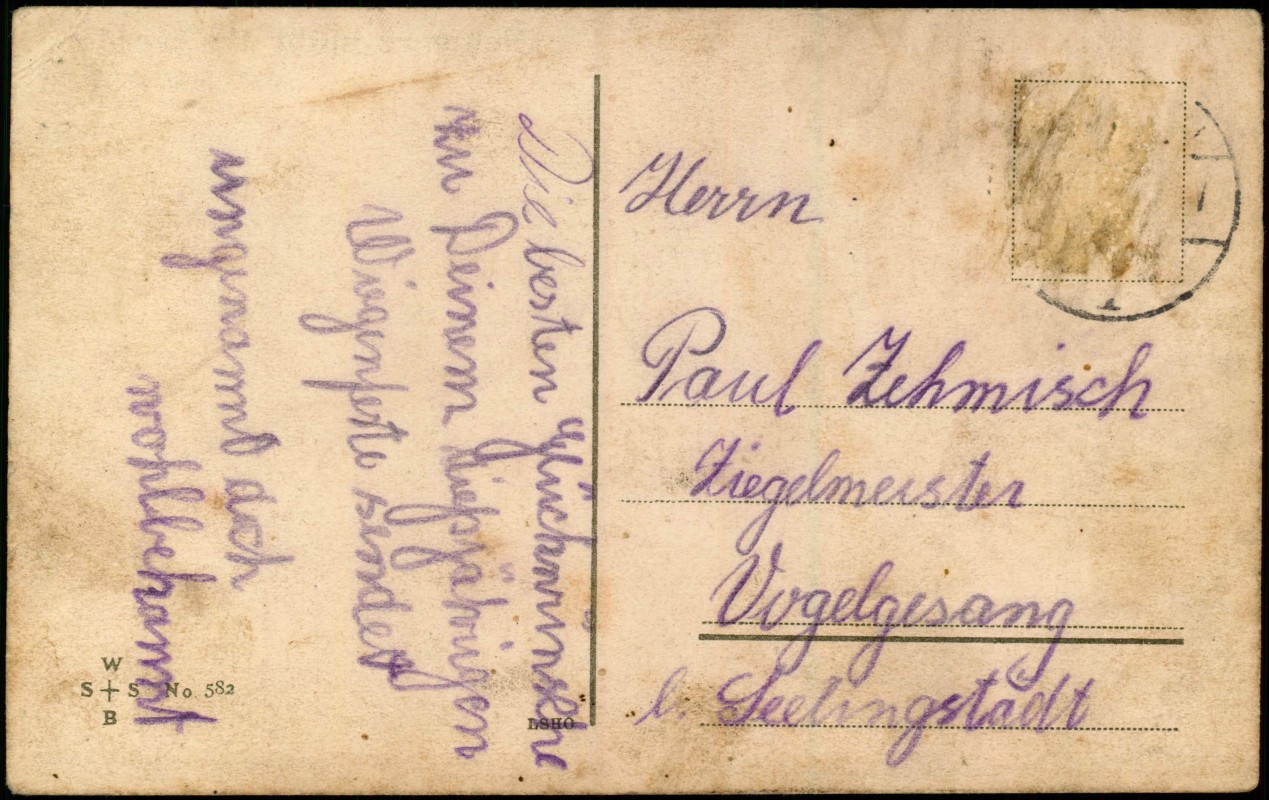 Die besten Glückwünsche
zu Deinem diesjährigen
Wiegenfeste sendet
ungenannd doch
wohlbekannt
Herrn
Paul Zehmisch
Ziegelmeister
Vogelgesang
b. Seelingstädt
W
S S No 582
B
LSHO